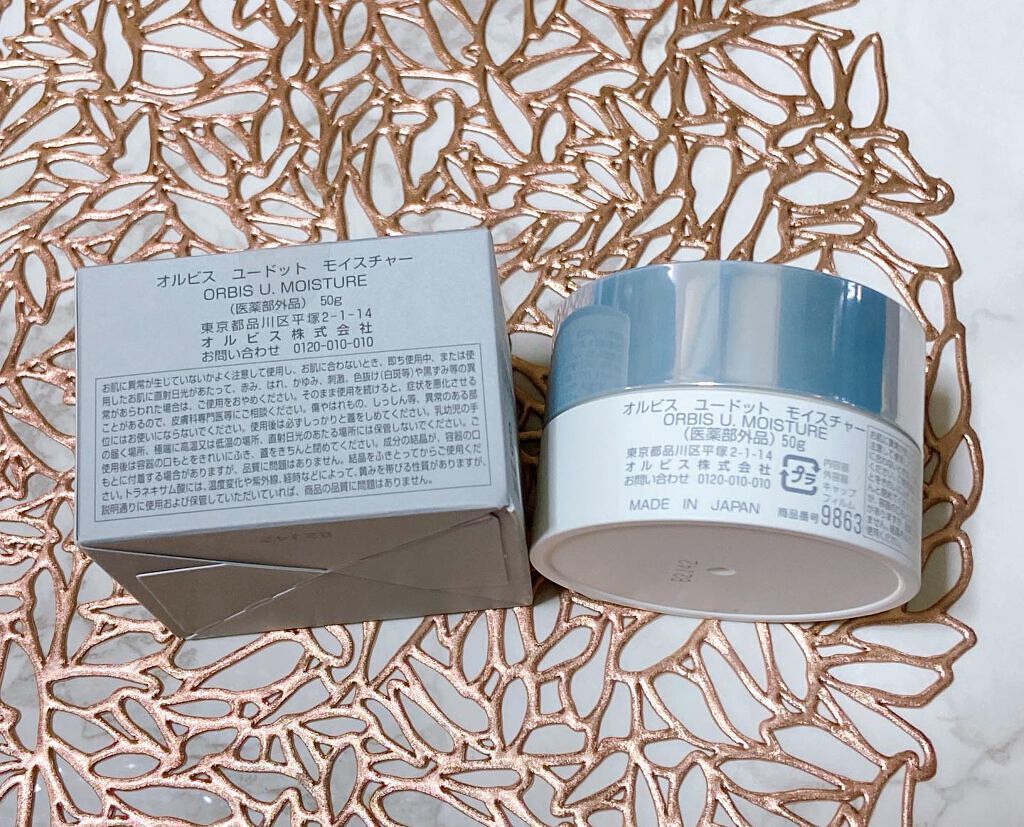 オルビス ユードット モイスチャー
ORBIS U. MOISTURE
(医薬部外品) 50g
東京都品川区平塚2-1-14
オルビス株式会社
お問い合わせ 0120-010-010
お肌に異常が生じていないかよく注意して使用し、お肌に合わないとき、即ち使用中、または使
用したお肌に直射日光があたって、赤み、はれ、かゆみ、刺激、色抜け(白斑等)や黒ずみ等の異
常があらわれた場合は、ご使用をおやめください。そのまま使用を続けると、症状を悪化させる
ことがあるので、皮膚科専門医等にご相談ください。傷やはれもの、しっしん等、異常のある部
位にはお使いにならないでください。使用後は必ずしっかりと蓋をしめてください。乳幼児の手
の届く場所、極端に高温又は低温の場所、直射日光のあたる場所には保管しないでください。ご
使用後は容器の口もとをきれいにふき、蓋をきちんと閉めてください。成分の結晶が、容器の口
もとに付着する場合がありますが、品質に問題はありません。結晶をふきとってからご使用くださ
い。トラネキサム酸には、温度変化や紫外線、経時などによって、黄みを帯びる性質がありますが、
説明通りに使用および保管していただいていれば、商品の品質に問題はありません。
オルビス ユードット モイスチャー
ORBIS U. MOISTURE
(医薬部外品) 50g
東京都品川区平塚2-1-14
オルビス株式会社
お問い合わせ 0120-010-010
プラ
MADE IN JAPAN
商品番号 9863